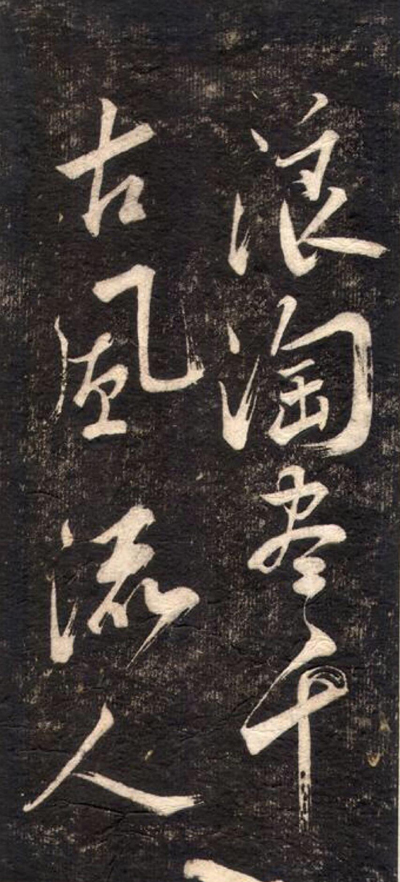 浪淘尽千
古風流人